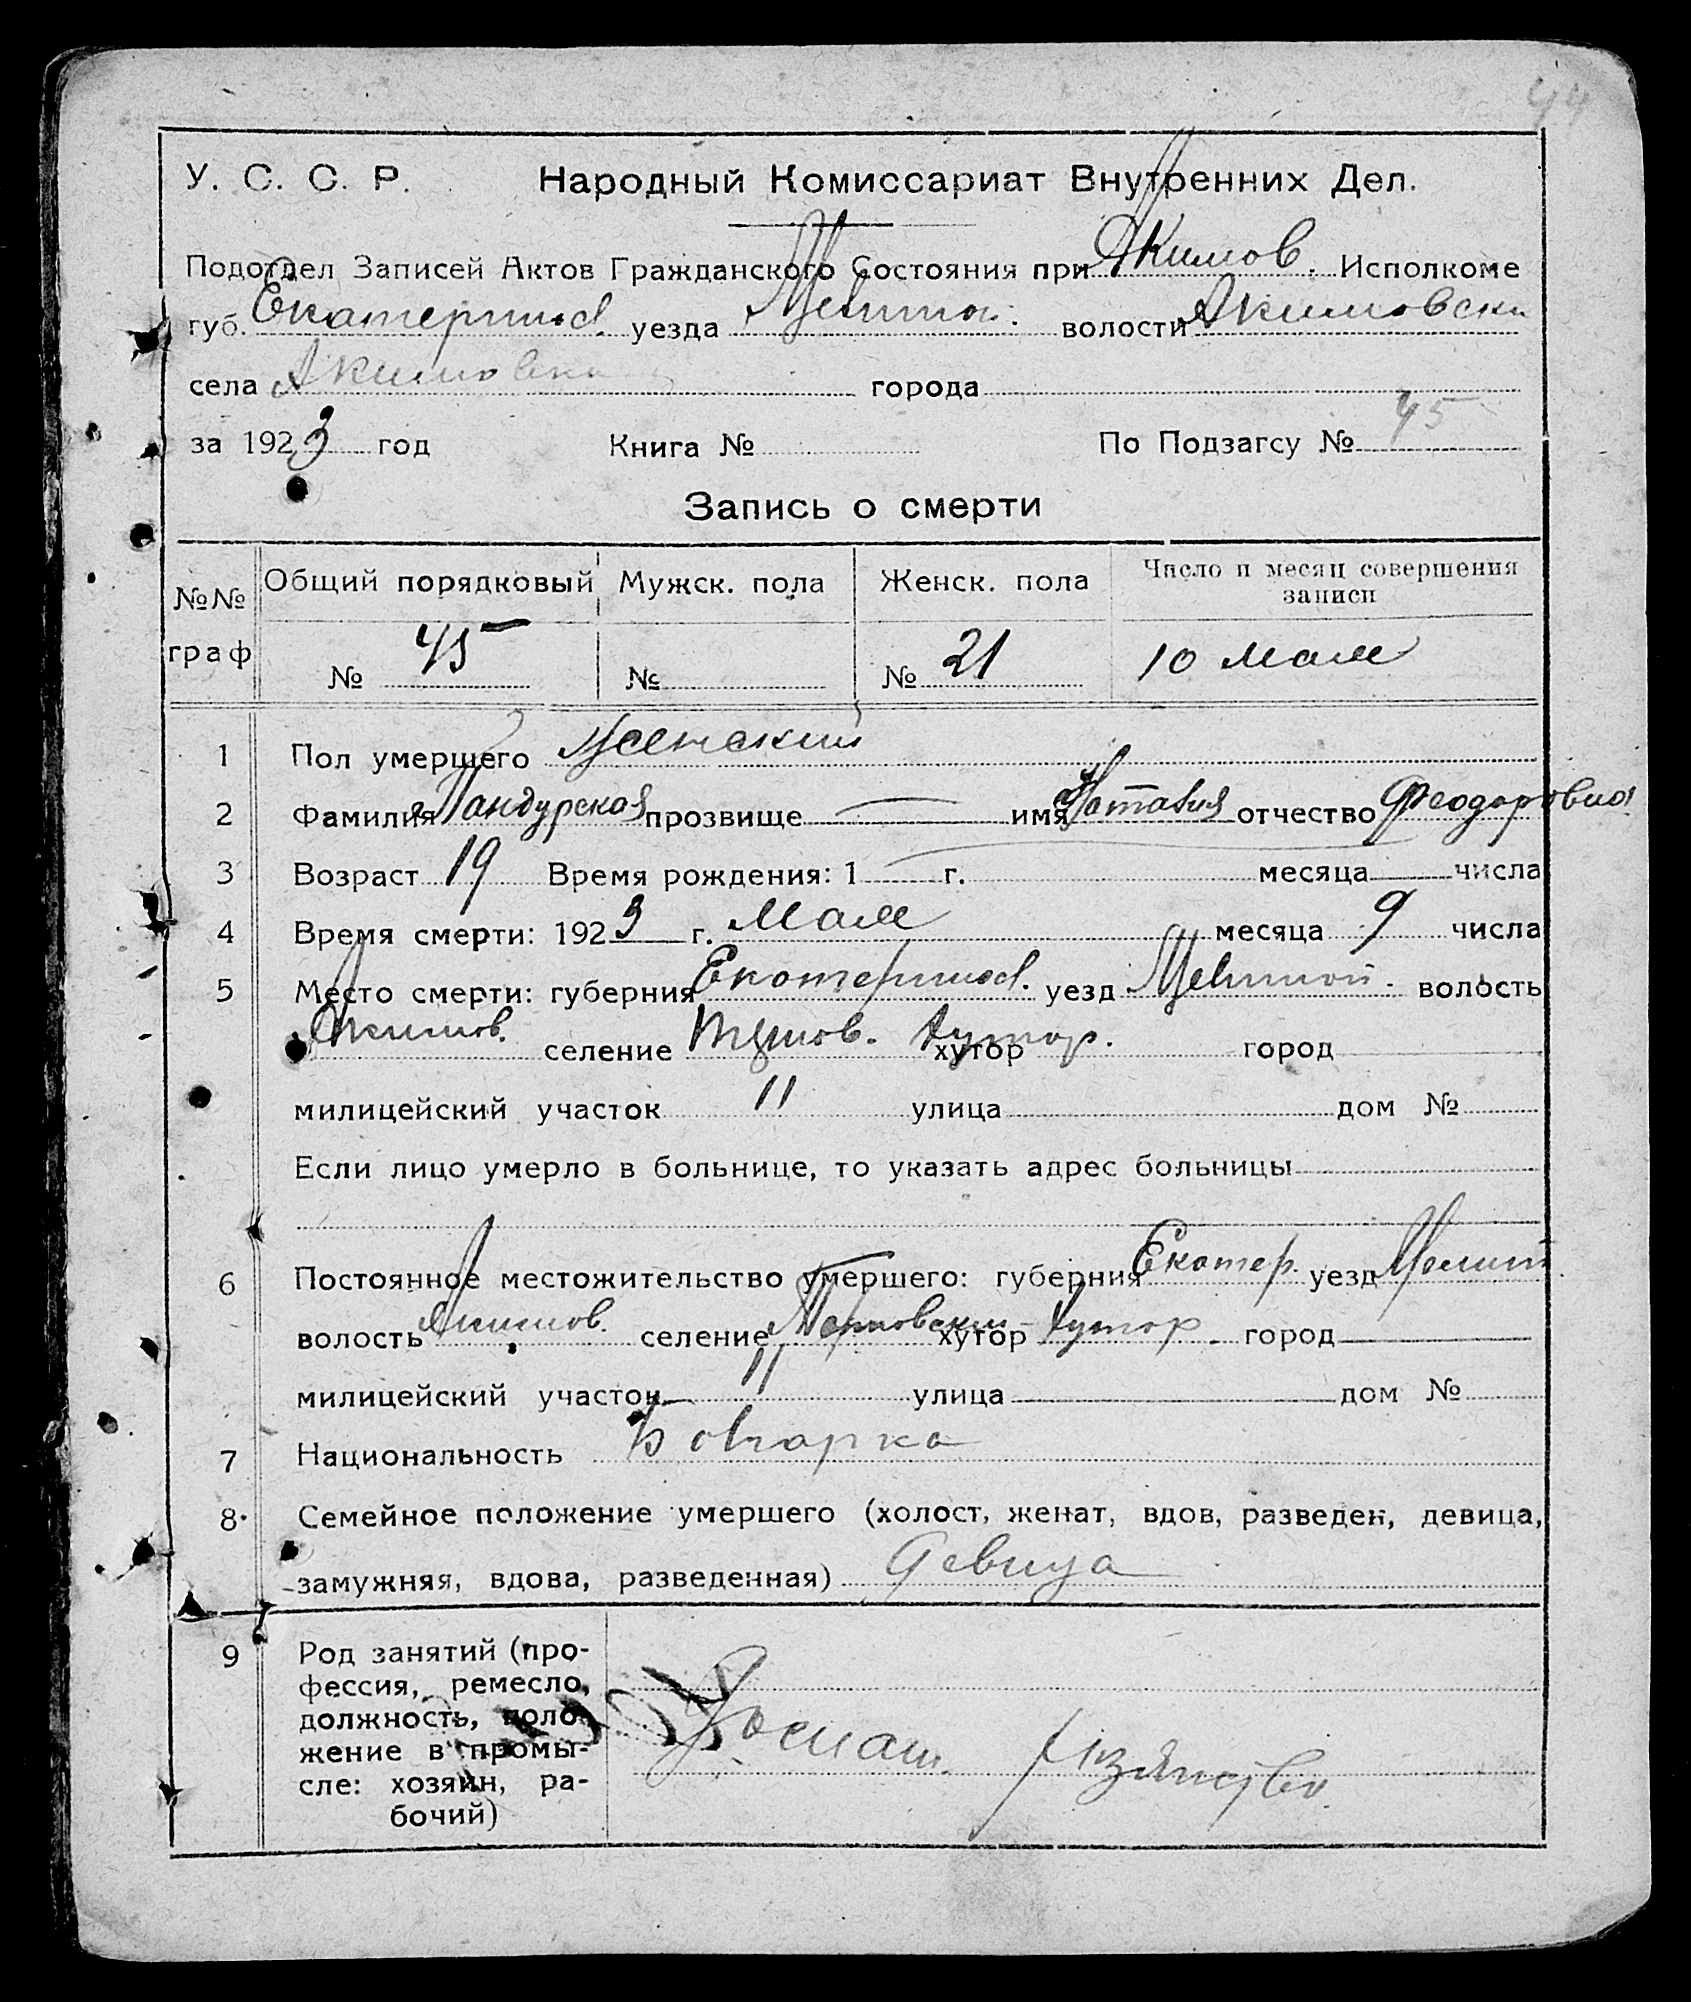 44
У. С. С. Р. Народный Комиссариат Внутренних Дел.
Подотдел Записей Актов Гражданского Состояния при Акимов. Исполкоме
губ. Екатеринос. уезда Мелитоп. волости Акимовски
села Акимовка города
за 1923 год Книга № По Подзагсу № 45
Запись о смерти
№№ граф Общий порядковый Мужск. пола Женск. пола Число и месяц совершения записи
№ 45 № № 21 10 мая
1 Пол умершего женский
2 Фамилия Пандурская прозвище — имя Наталия отчество Феодоровна
3 Возраст 19 Время рождения: 1 г. месяца числа
4 Время смерти: 1923 г. мая месяца 9 числа
5 Место смерти: губерния Екатеринос. уезд Мелитоп. волость
Акимов. селение хутор хутор. город
милицейский участок 11 улица дом №
Если лицо умерло в больнице, то указать адрес больницы
6 Постоянное местожительство умершего: губерния Екатер. уезд Мелит
волость Акимов. селение хутор хутор город
милицейский участок 11 улица дом №
7 Национальность Болгарка
8 Семейное положение умершего (холост, женат, вдов, разведен, девица,
замужняя, вдова, разведенная) девица
9 Род занятий (про-
фессия, ремесло,
должность, поло-
жение в промы-
сле: хозяин, ра-
бочий)